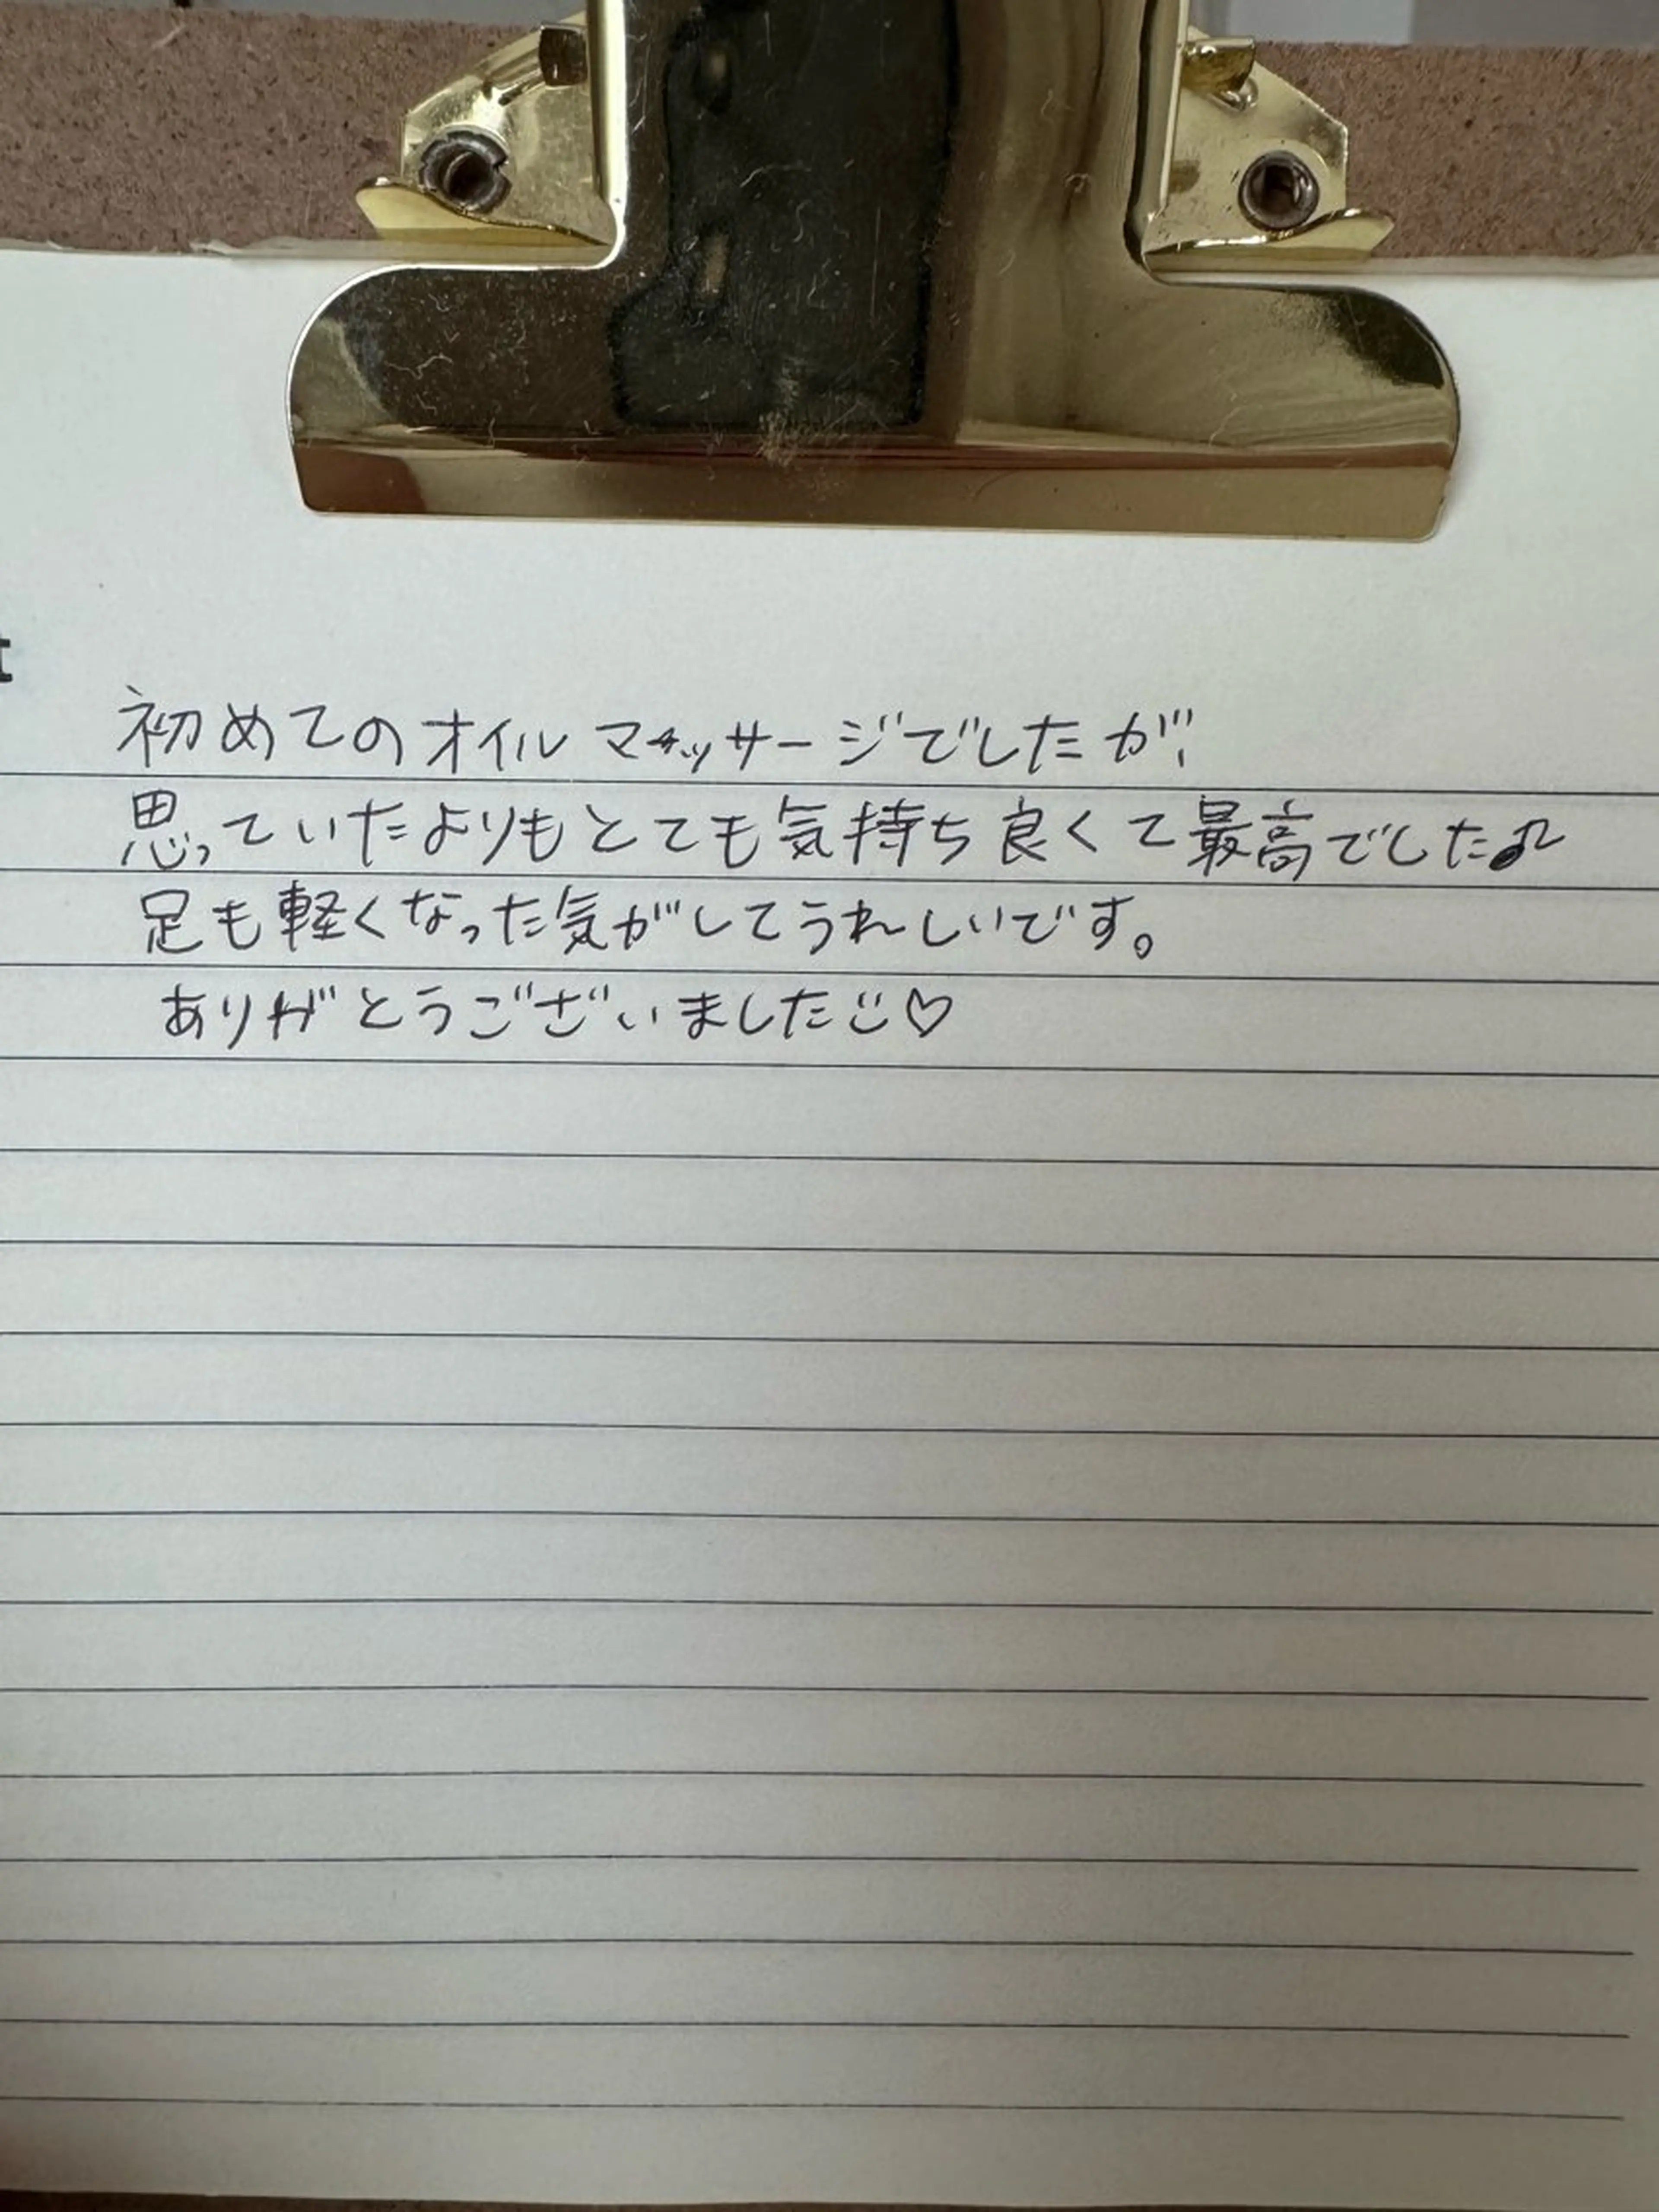 初めてのオイルマッサージでしたが、
思っていたよりもとても気持ち良くて最高でした♪
足も軽くなった気がしてうれしいです。
ありがとうございました☺♡